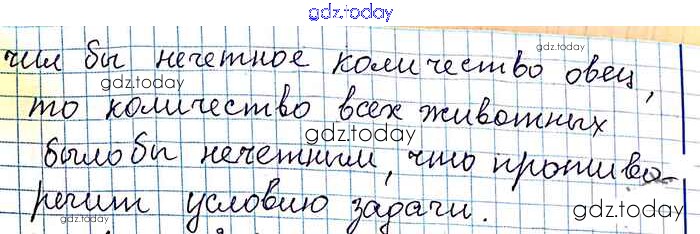 gdz.today
чил бы нечетное количество овец,
gdz.today
gdz.today
то количество всех животных
gdz.today
было бы нечетным, что противо-
речит условию задачи.
gdz.today
gdz.today